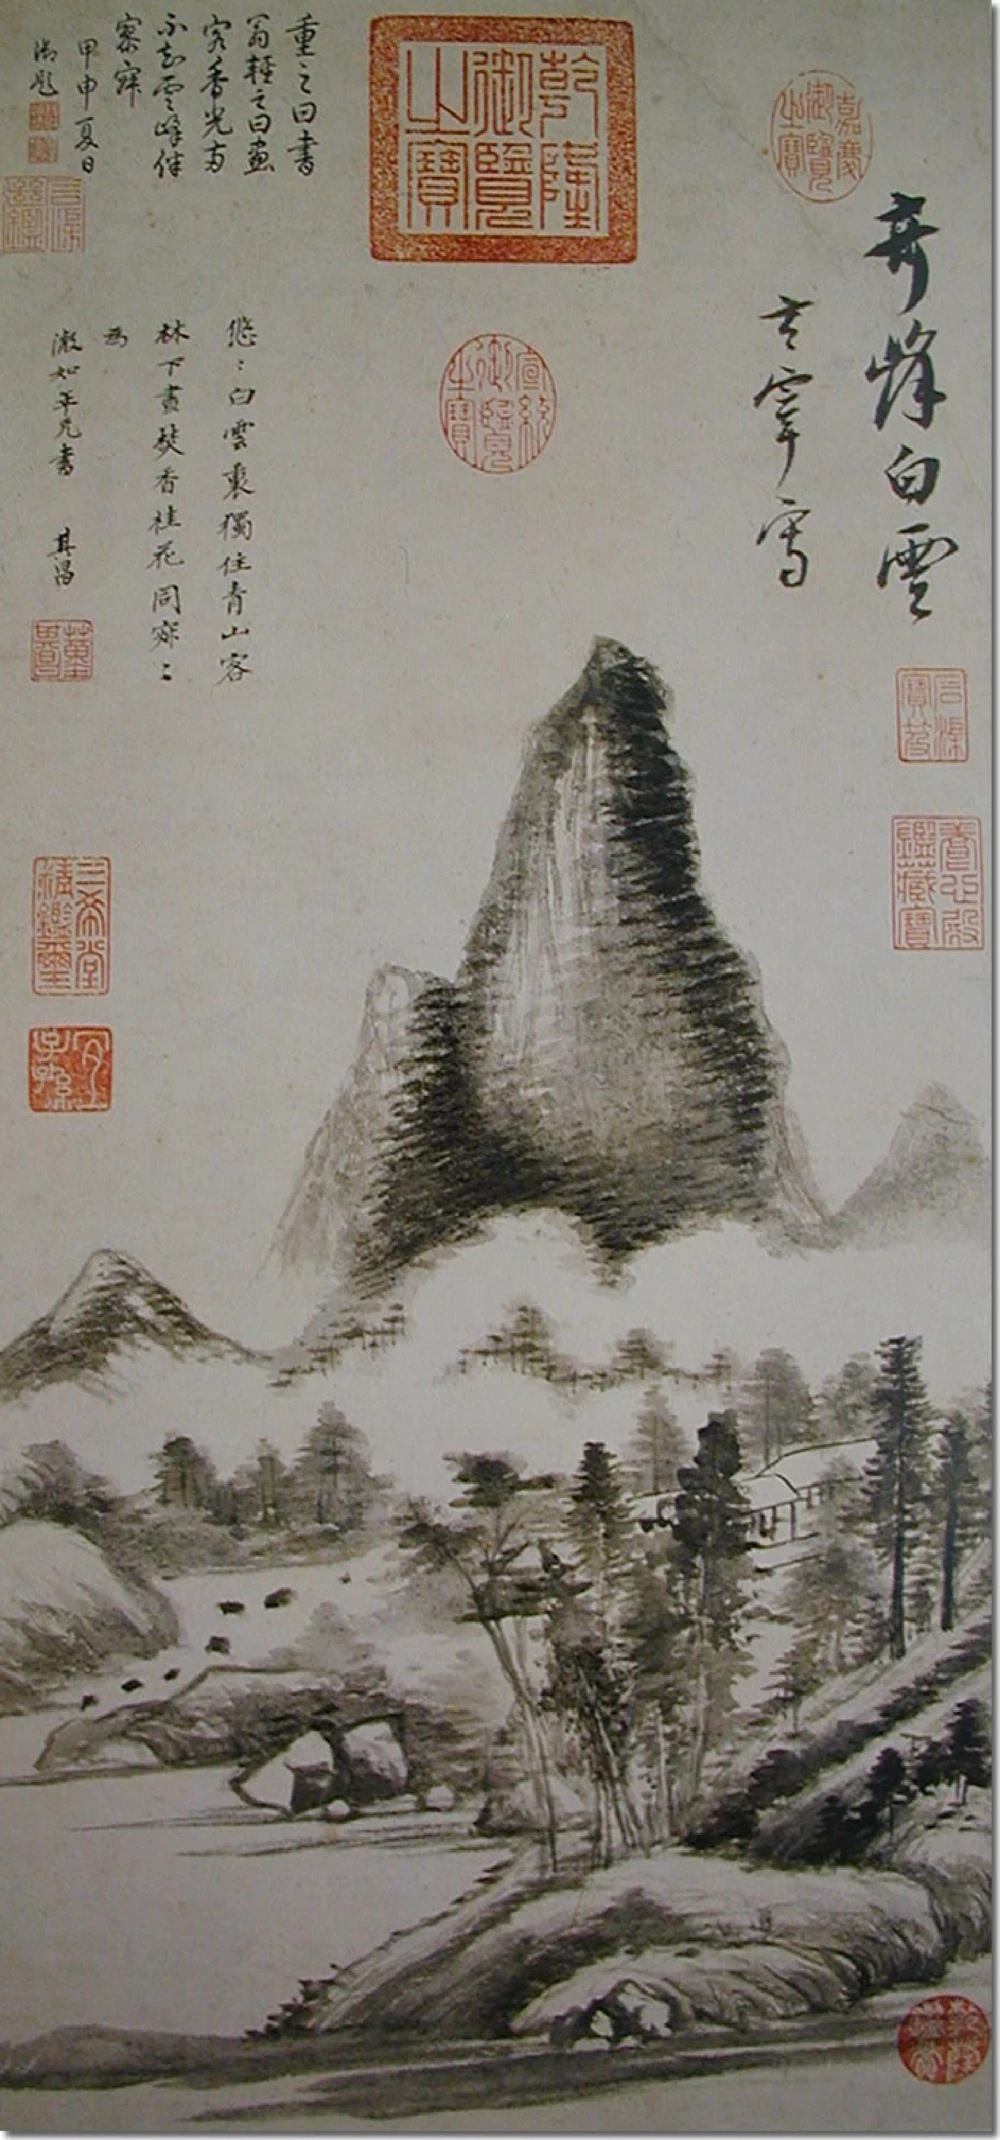 嘉慶御覽之寶
奇峰白雲
玄宰寫
石渠寶笈
養心殿鑑藏寶
乾隆御覽之寶
宣統御覽之寶
重之曰書
翁輕之曰畫
客香光両
不知雲峰伴
寥寂
甲申夏日
御題
悠〻白雲裏獨住青山客
林下晝焚香桂花同寂〻
為
澂如年兄書 其昌
董其昌
三希堂精鑑璽
宜子孫
乾隆鑑賞